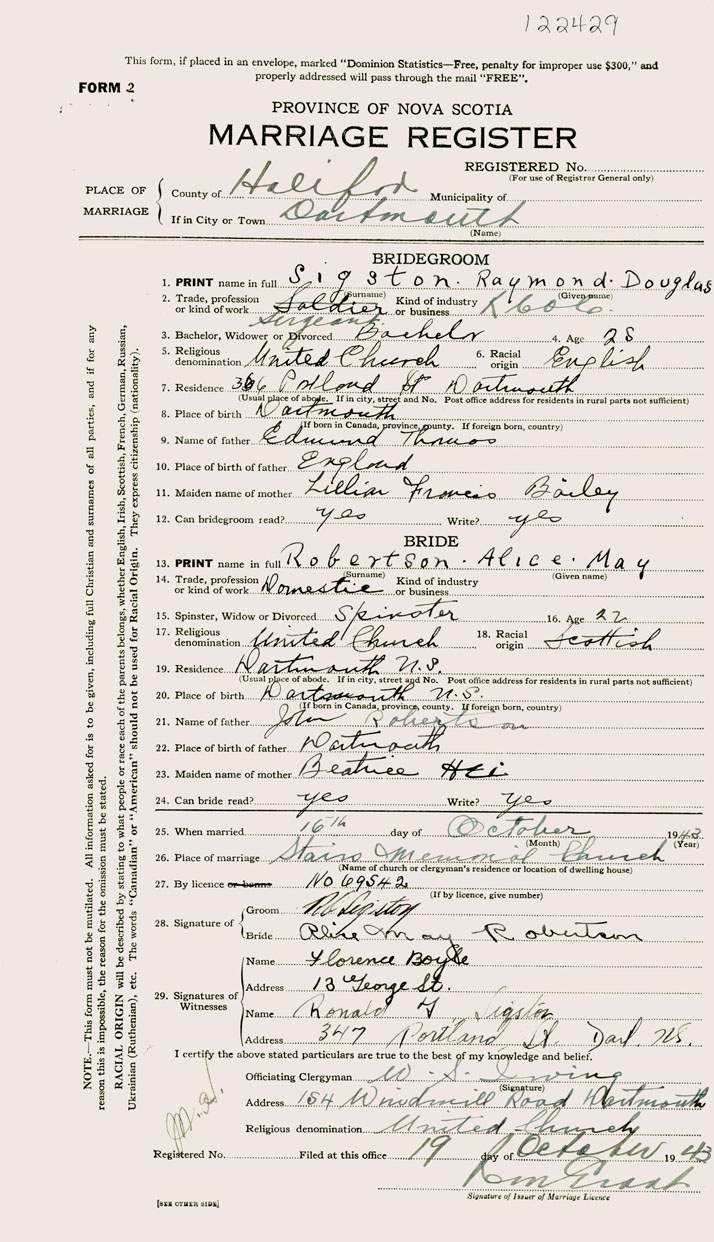 122429
This form, if placed in an envelope, marked "Dominion Statistics—Free, penalty for improper use $300," and
properly addressed will pass through the mail "FREE".
FORM 2
PROVINCE OF NOVA SCOTIA
MARRIAGE REGISTER
REGISTERED No.
(For use of Registrar General only)
PLACE OF MARRIAGE
County of Halifax Municipality of
If in City or Town Dartmouth
(Name)
BRIDEGROOM
1. PRINT name in full Sigston. Raymond. Douglas
(Surname) (Given name)
2. Trade, profession or kind of work Soldier Kind of industry or business
Sergeant
3. Bachelor, Widower or Divorced Bachelor 4. Age 28
5. Religious denomination United Church 6. Racial origin English
7. Residence 366 Portland St Dartmouth
(Usual place of abode. If in city, street and No. Post office address for residents in rural parts not sufficient)
8. Place of birth Dartmouth
(If born in Canada, province, county. If foreign born, country)
9. Name of father Edmund Thomas
10. Place of birth of father England
11. Maiden name of mother Lillian Francis Bailey
12. Can bridegroom read? yes Write? yes
BRIDE
13. PRINT name in full Robertson. Alice. May
(Surname) (Given name)
14. Trade, profession or kind of work Domestic Kind of industry or business
15. Spinster, Widow or Divorced Spinster 16. Age 22
17. Religious denomination United Church 18. Racial origin Scottish
19. Residence Dartmouth N.S.
(Usual place of abode. If in city, street and No. Post office address for residents in rural parts not sufficient)
20. Place of birth Dartmouth N.S.
(If born in Canada, province, county. If foreign born, country)
21. Name of father John Robertson
22. Place of birth of father Dartmouth
23. Maiden name of mother Beatrice
24. Can bride read? yes Write? yes
25. When married 16th day of October 1943
(Month) (Year)
26. Place of marriage Stairs Memorial Church
(Name of church or clergyman's residence or location of dwelling house)
27. By licence or banns No 69542
(If by licence, give number)
28. Signature of
Groom Sigston
Bride Alice May Robertson
29. Signatures of Witnesses
Name Florence Boyle
Address 13 George St.
Name Ronald Sigston
Address 347 Portland St Dart N.S.
I certify the above stated particulars are true to the best of my knowledge and belief.
Officiating Clergyman W. S. Irving
(Signature)
Address 154 Windmill Road Dartmouth
Religious denomination United Church
Registered No. Filed at this office 19 day of October 1943
Signature of Issuer of Marriage Licence
[SEE OTHER SIDE]
NOTE.—This form must not be mutilated. All information asked for is to be given, including full Christian and surnames of all parties, and if for any
reason this is impossible, the reason for the omission must be stated.
RACIAL ORIGIN will be described by stating to what people or race each of the parents belongs, whether English, Irish, Scottish, French, German, Russian,
Ukrainian (Ruthenian), etc. The words "Canadian" or "American" should not be used for Racial Origin. They express citizenship (nationality).